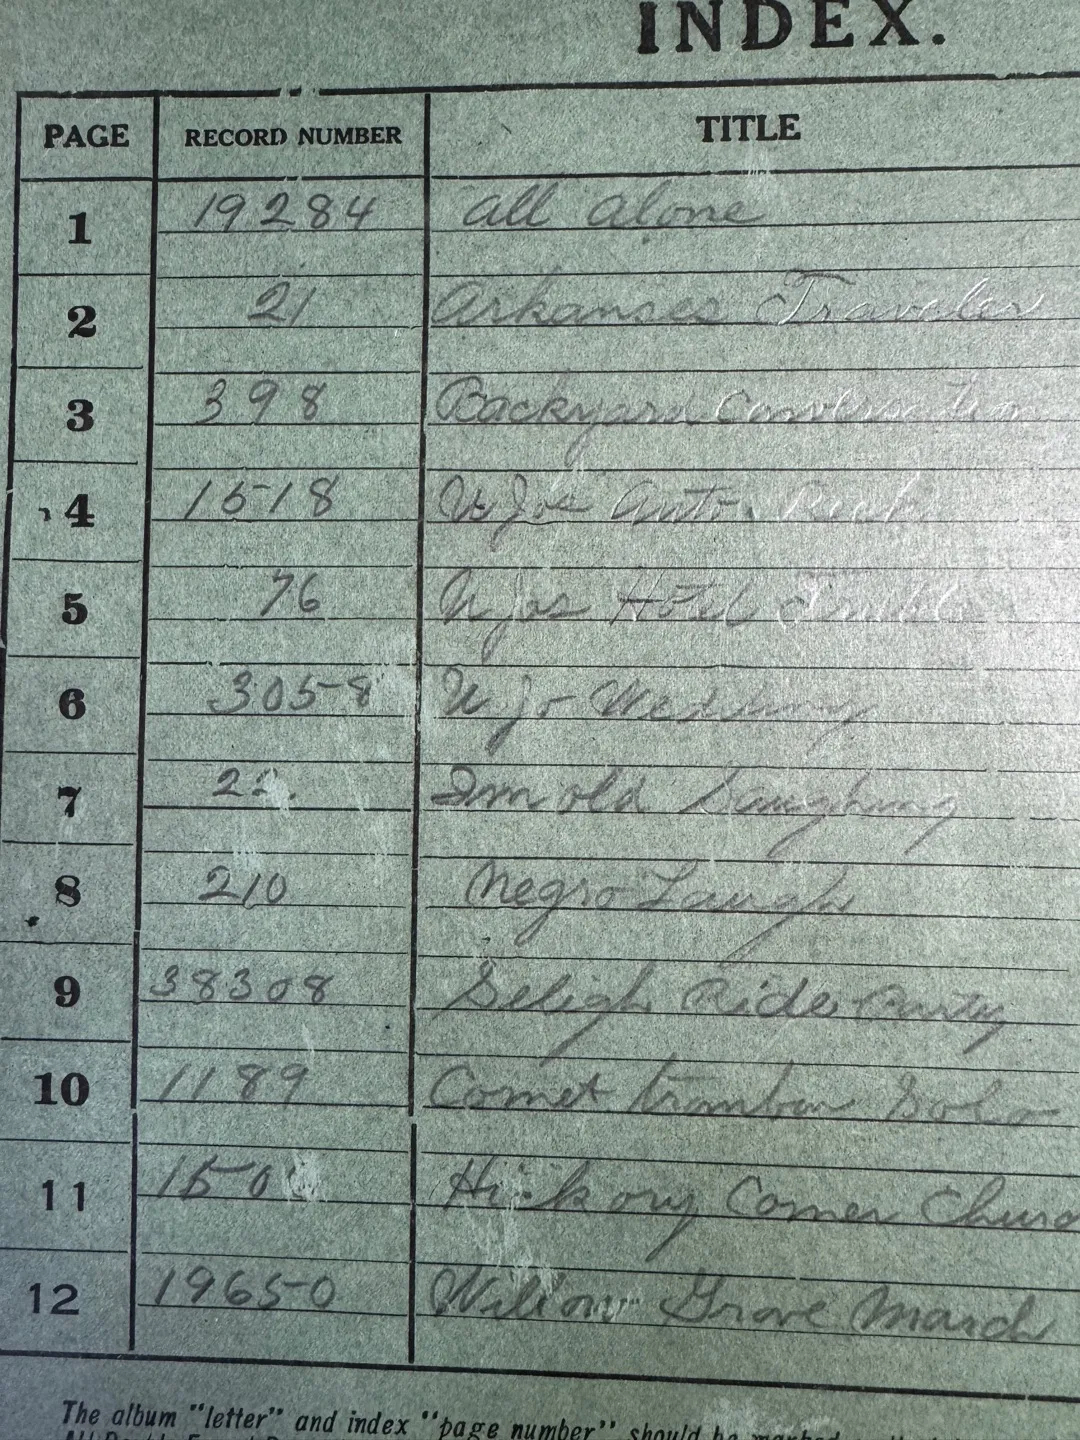 INDEX.
PAGE RECORD NUMBER TITLE
1 19284 All Alone
2 21 Arkansas Traveler
3 398 Backyard Conversation
4 1518 U Jos Auto
5 76 U Jos Hotel
6 3058 U Jo Wedding
7 22. old Laughing
8 210 Negro Laugh
9 38308 Seligh Ride Party
10 1189 Cornet trombon Solo
11 150 Hickory Corner Churc
12 19650 Willow Grove March
The album "letter" and index "page number" should be marked